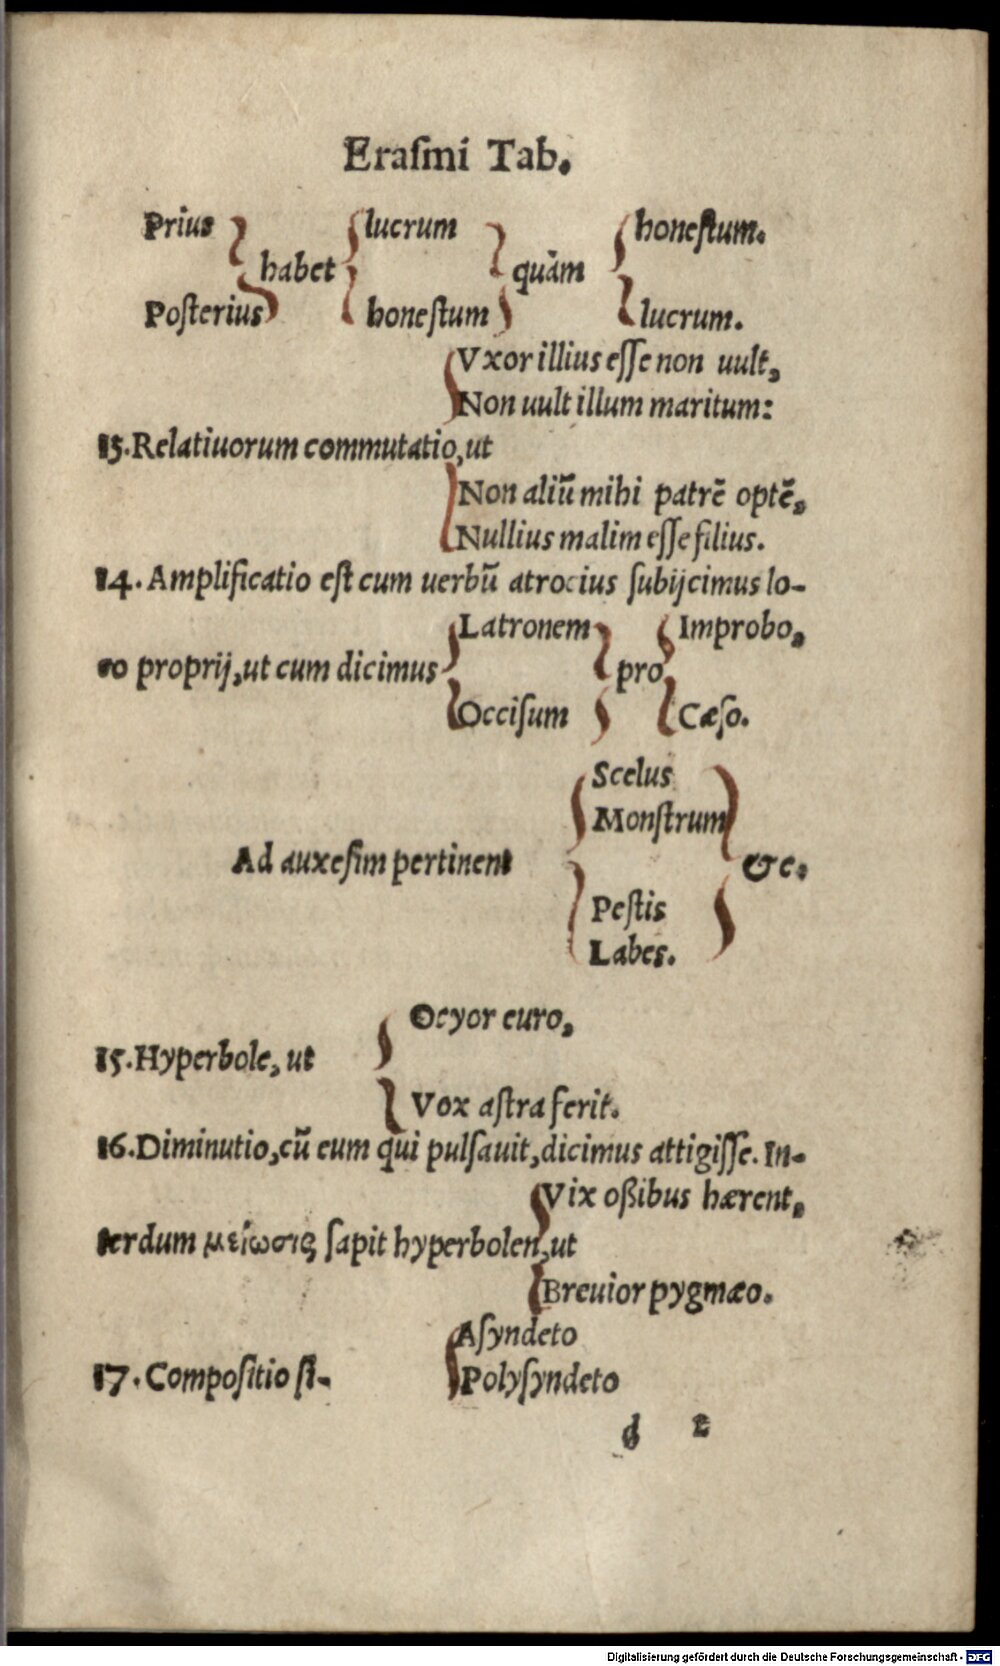 Eraſmi Tab.
Prius lucrum honeſtum.
habet quàm
Poſterius honeſtum lucrum.
Vxor illius eſſe non uult,
Non uult illum maritum:
15. Relatiuorum commutatio, ut
Non aliũ mihi patrẽ optẽ,
Nullius malim eſſe filius.
14. Amplificatio eſt cum uerbũ atrocius ſubijcimus lo-
Latronem Improbo,
co proprij, ut cum dicimus pro
Occiſum Cæſo.
Scelus
Monſtrum
Ad auxeſim pertinent &c.
Peſtis
Labes.
Ocyor euro,
15. Hyperbole, ut
Vox aſtra ferit.
16. Diminutio, cũ eum qui pulſauit, dicimus attigiſſe. In-
Vix oßibus hærent,
terdum μείωσις ſapit hyperbolen, ut
Breuior pygmæo.
Aſyndeto
17. Compoſitio fi-
Polyſyndeto
d 2
Digitalisierung gefördert durch die Deutsche Forschungsgemeinschaft - DFG